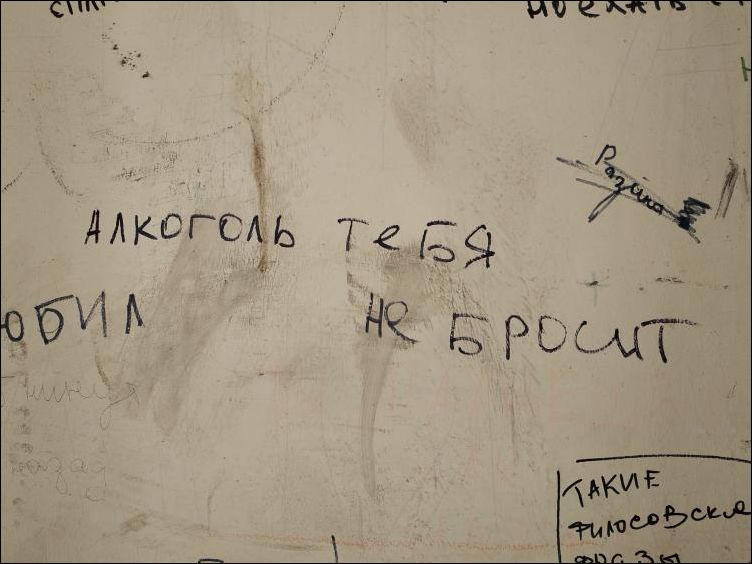 поехать
АЛКОГОЛЬ тебя
юбил не бросит
назад
ТАКИЕ
филосовские
фразы